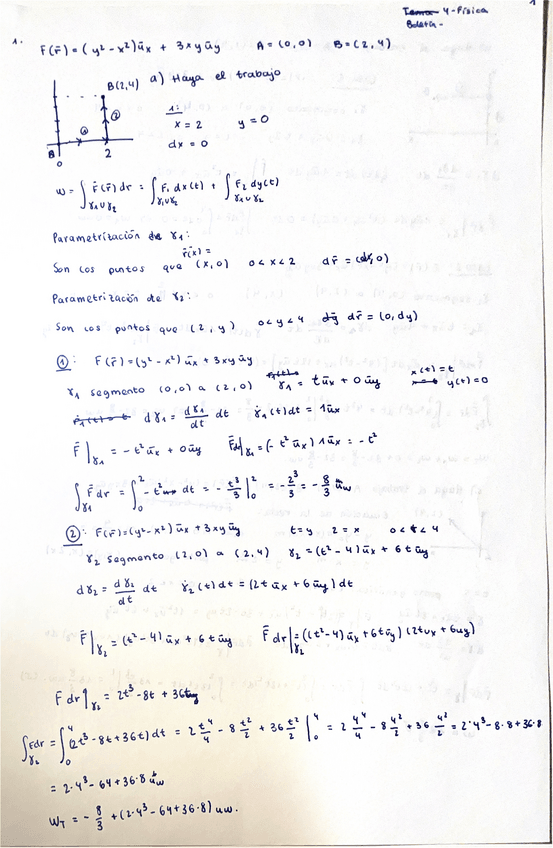 4-Física
Boletín-
1
1. F(r̄) = (y² - x²) ūx + 3xy ūy A = (0,0) B = (2,4)
a) Haya el trabajo
B(2,4)
②
①
0
2
1:
x = 2 y = 0
dx = 0
W = ∫γ1∪γ2 F̄(r̄) dr̄ = ∫γ1∪γ2 F1 dx(t) + ∫γ1∪γ2 F2 dy(t)
Parametrización de γ1:
r̄(x) =
Son los puntos que (x, 0) 0<x<2 dr̄ = (dx, 0)
Parametrización de γ2:
Son los puntos que (2, y) 0<y<4 dr̄ = (0, dy)
①: F(r̄) = (y² - x²) ūx + 3xy ūy
γ1 segmento (0,0) a (2,0) γ1 = t ūx + 0 ūy x(t) = t
y(t) = 0
dγ1 = dγ1/dt dt γ̇1(t) dt = 1ūx
F̄|γ1 = - t² ūx + 0 ūy F̄dr|γ1 = (- t² ūx) 1ūx = - t²
∫γ1 F̄ dr = ∫₀² - t² dt = - t³/3 |₀² = - 2³/3 = - 8/3 uw
②: F(r̄) = (y² - x²) ūx + 3xy ūy t = y 2 = x 0<t<4
γ2 segmento (2,0) a (2,4) γ2 = (t² - 4) ūx + 6t ūy
dγ2 = dγ2/dt dt γ̇2(t) dt = (2t ūx + 6 ūy) dt
F̄|γ2 = (t² - 4) ūx + 6t ūy F̄ dr|γ2 = ((t² - 4) ūx + 6t ūy) (2t ux + 6 uy)
F dr|γ2 = 2t³ - 8t + 36t
∫γ2 Fdr = ∫₀⁴ (2t³ - 8t + 36t) dt = 2 t⁴/4 - 8 t²/2 + 36 t²/2 |₀⁴ = 2 4⁴/4 - 8 4²/2 + 36 4²/2 = 2·4³ - 8·8 + 36·8
= 2·4³ - 64 + 36·8 uw
WT = - 8/3 + (2·4³ - 64 + 36·8) uw.